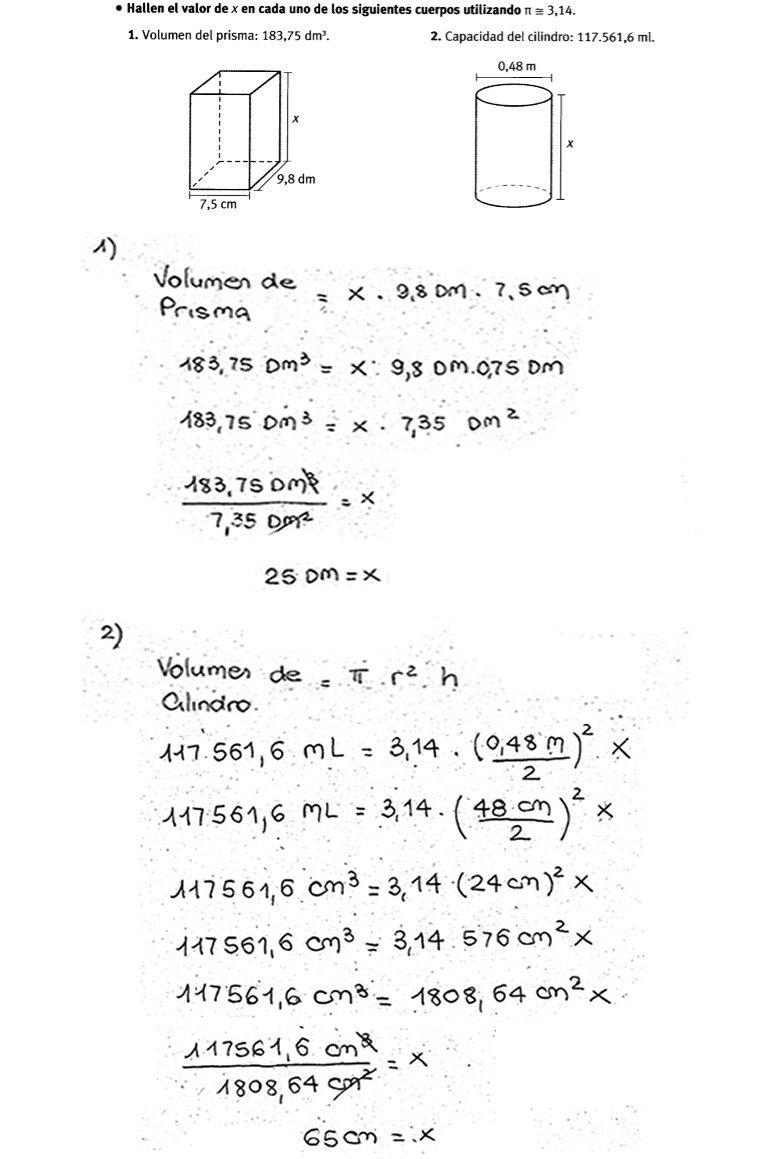 • Hallen el valor de x en cada uno de los siguientes cuerpos utilizando π ≅ 3,14.
1. Volumen del prisma: 183,75 dm³.
2. Capacidad del cilindro: 117.561,6 ml.
x
9,8 dm
7,5 cm
0,48 m
x
1)
Volumen de
Prisma = x . 9,8 Dm . 7,5 cm
183,75 Dm³ = x . 9,8 Dm . 0,75 Dm
183,75 Dm³ = x . 7,35 Dm²
183,75 Dm³
7,35 Dm² = x
25 Dm = x
2)
Volumen de
Cilindro. = π . r² . h
117.561,6 mL = 3,14 . (0,48 m / 2)² . x
117561,6 mL = 3,14 . (48 cm / 2)² x
117561,6 cm³ = 3,14 . (24 cm)² x
117561,6 cm³ = 3,14 . 576 cm² x
117561,6 cm³ = 1808,64 cm² x
117561,6 cm³
1808,64 cm² = x
65 cm = x